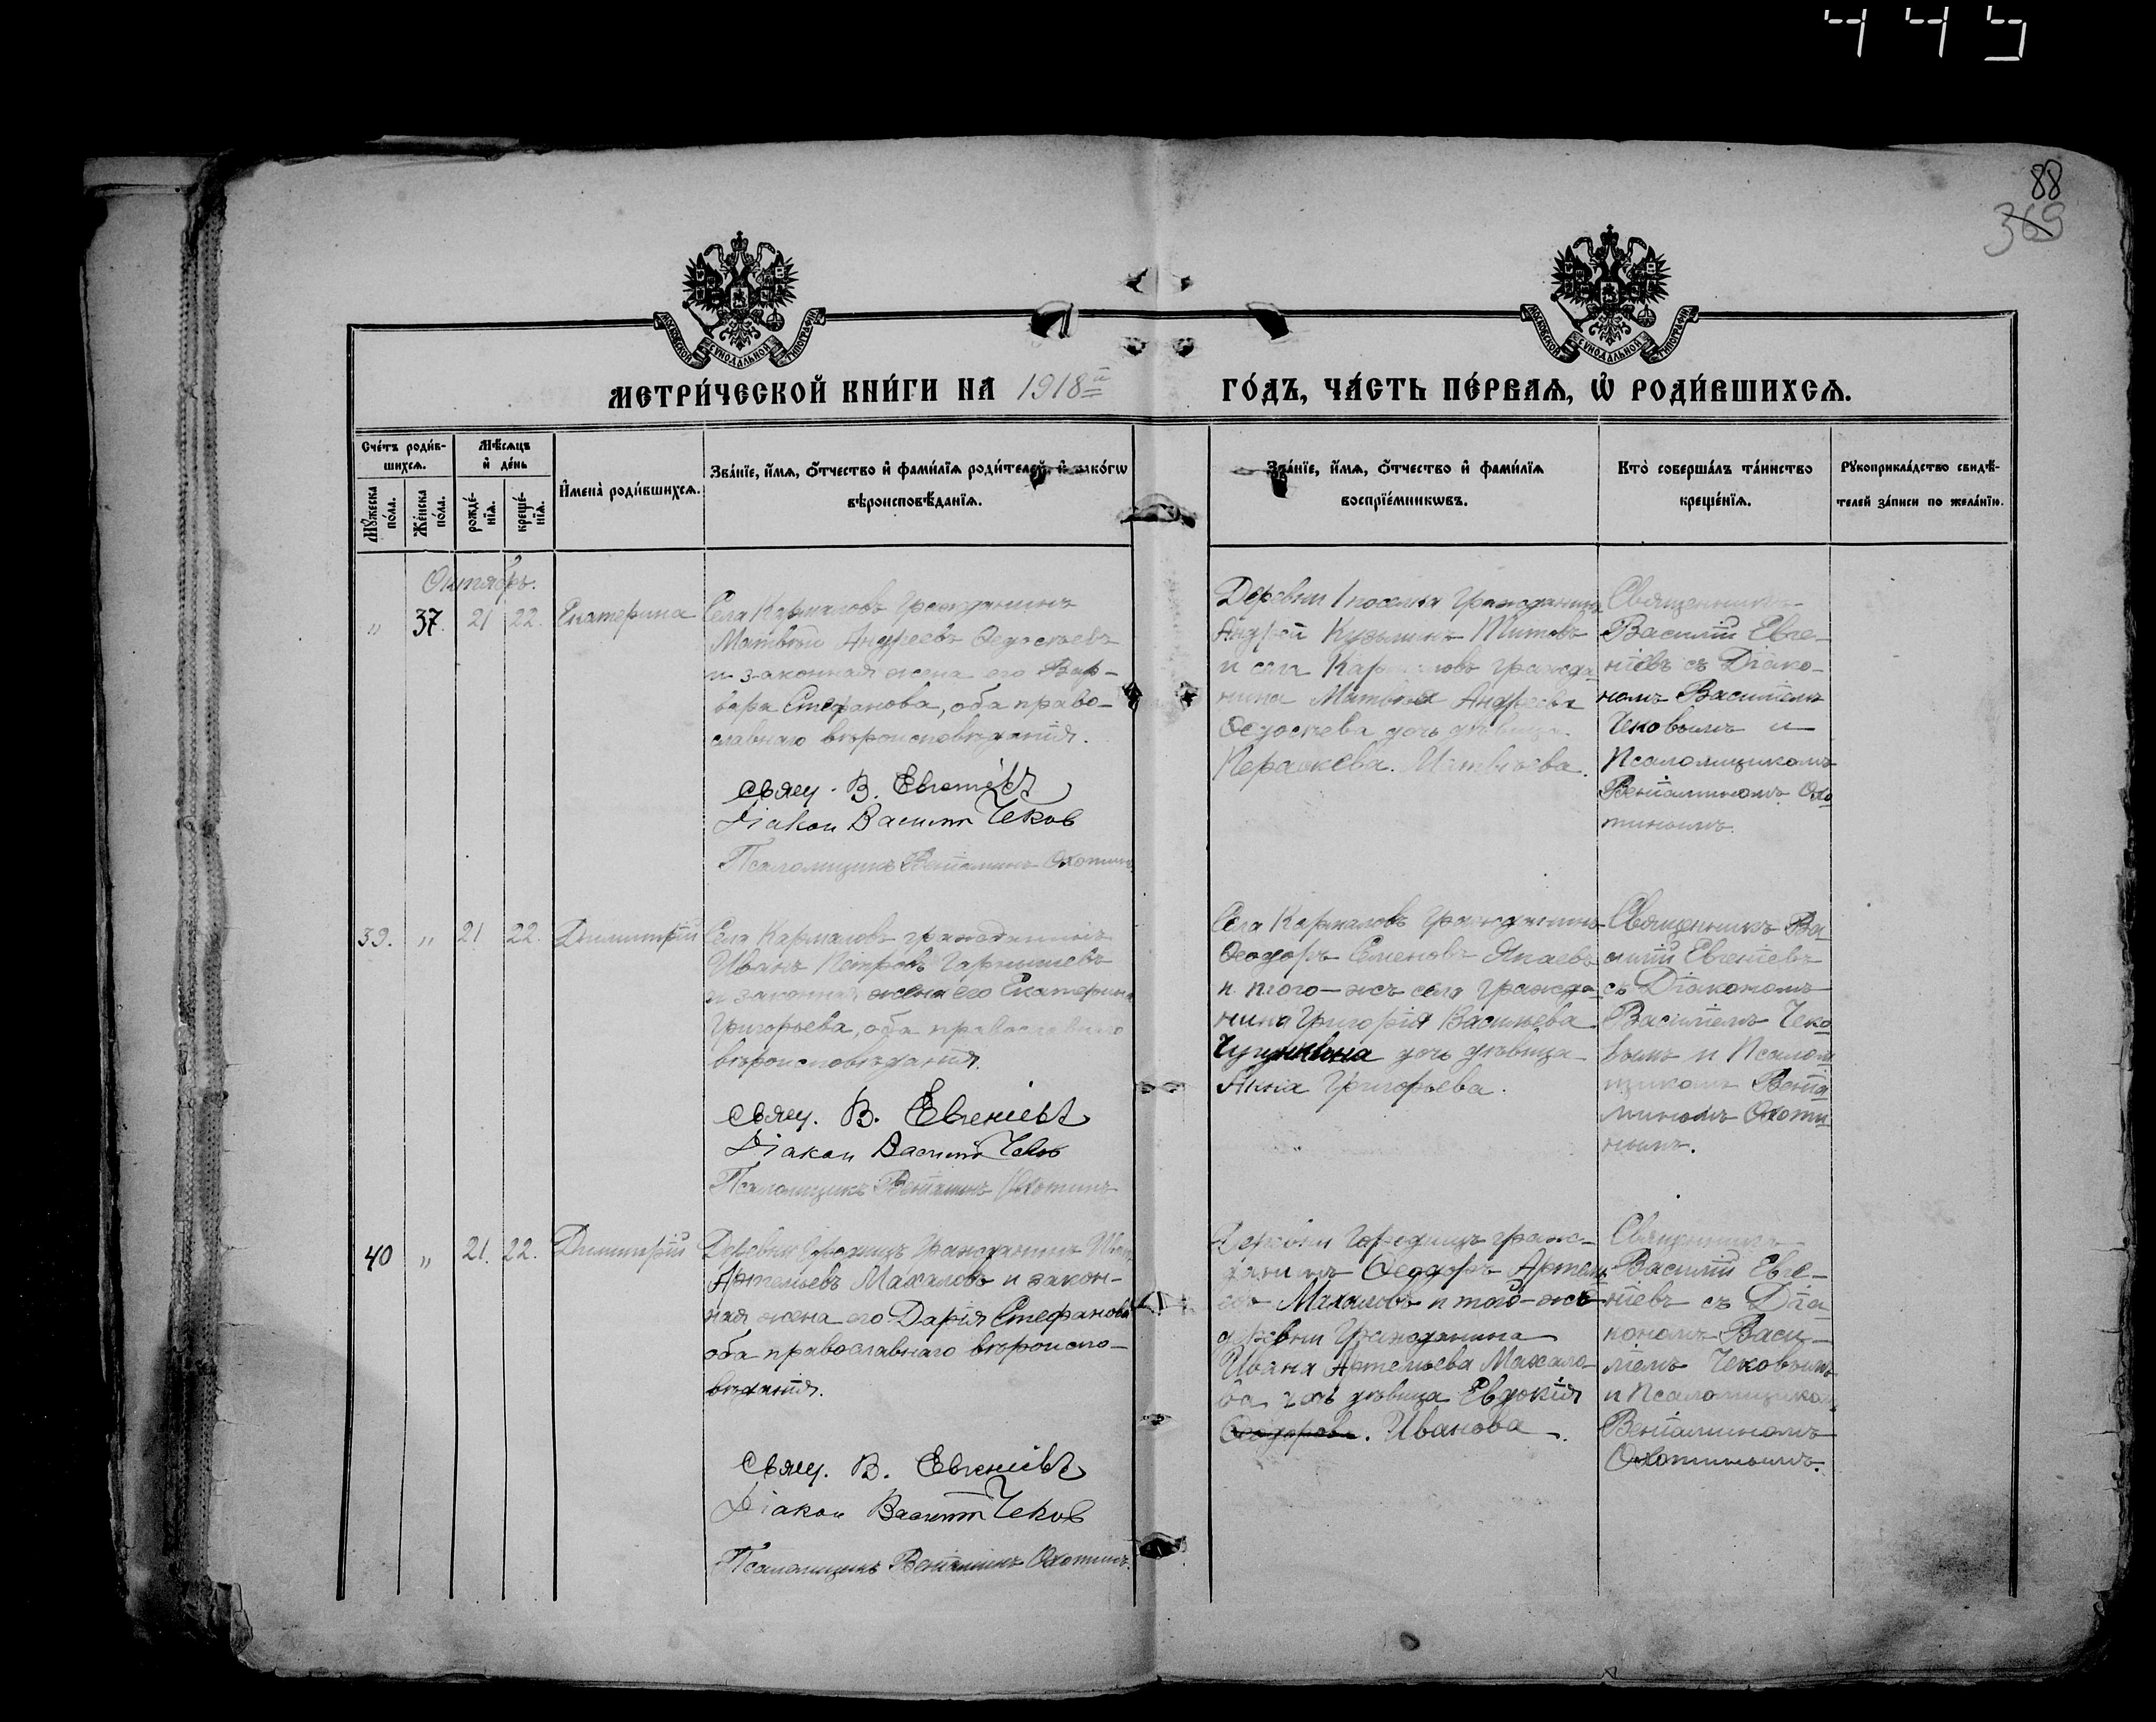 445
88
369
МОСКОВСКОЙ СУНОДАЛЬНОЙ ТИПОГРАФІИ
МОСКОВСКОЙ СУНОДАЛЬНОЙ ТИПОГРАФІИ
МЕТРИ́ЧЕСКОЙ КНИ́ГИ НА 1918й
ГО́ДЪ, ЧА́СТЬ ПЕ́РВАѦ, Ѡ҆ РОДИ́ВШИХСѦ.
Сче́тъ роди́в-
шихсѧ.
Мꙋ́жеска по́ла.
Же́нска по́ла.
Мѣ́сѧцъ
и҆ де́нь
рожде́-
нїѧ.
креще́-
нїѧ.
И҆мена̀ роди́вшихсѧ.
Зва́нїе, и҆́мѧ, ѻ҆́тчество и҆ фами́лїѧ роди́телей, и҆ како́гѡ
вѣроисповѣ́данїѧ.
Зва́нїе, и҆́мѧ, ѻ҆́тчество и҆ фами́лїѧ
воспрїе́мникѡвъ.
Кто̀ соверша́лъ та́инство
креще́нїѧ.
Рꙋкоприкла́дство свидѣ́-
телей за́писи по жела́нїю.
Октябрь.
„ 37. 21 22. Екатерина
Села Кармаловъ гражданинъ
Матвѣй Андреевъ Ѳедосѣевъ
и законная жена его Вар-
вара Стефанова, оба право-
славнаго вѣроисповѣданія.
Свящ. В. Евгеніевъ
Діакон Василій Чеков
Псаломщикъ Веніаминъ Охотинъ
Деревни поселка гражданинъ
Андрей Кузьминъ Титовъ
и села Кармаловъ гражда-
нина Матвѣя Андреева
Ѳедосѣева дочь дѣвица
Параскева Матвѣева.
Священникъ
Василій Евге-
ніевъ съ Діако-
номъ Василіемъ
Чековымъ и
Псаломщикомъ
Веніаминомъ Охо
тинымъ.
39. „ 21 22. Димитрій
Села Кармаловъ гражданинъ
Иванъ Петровъ
и законная жена его Екатерина
Григорьева, оба православнаго
вѣроисповѣданія.
Свящ. В. Евгеніевъ
Діакон Василій Чеков
Псаломщикъ Веніаминъ Охотинъ
Села Кармаловъ гражданинъ
Ѳеодоръ Семеновъ Япаевъ
и того-же села гражда-
нина Григорія Васильева
дочь дѣвица
Анна Григорьева.
Священникъ Ва
силій Евгеніевъ
съ Діакономъ
Василіемъ Чеко
вымъ и Псалом
щикомъ Веніа
миномъ Охоти
нымъ.
40 „ 21. 22. Димитрій
Деревни Городищъ гражданинъ Иванъ
Артемьевъ Махаловъ и закон-
ная жена его Дарія Стефанова
оба православнаго вѣроиспо-
вѣданія.
Свящ. В. Евгеніевъ
Діакон Василій Чеков
Псаломщикъ Веніаминъ Охотинъ.
Деревни Городищъ граж-
данинъ Ѳеодоръ Артемь
евъ Махаловъ и того-же
деревни гражданина
Ивана Артемьева Махало-
ва дочь дѣвица Евдокія
Ѳеодорова. Иванова.
Священникъ
Василій Евге-
ніевъ съ Діа
кономъ Васи-
ліемъ Чековымъ
и Псаломщиком
Веніаминомъ
Охотинымъ.